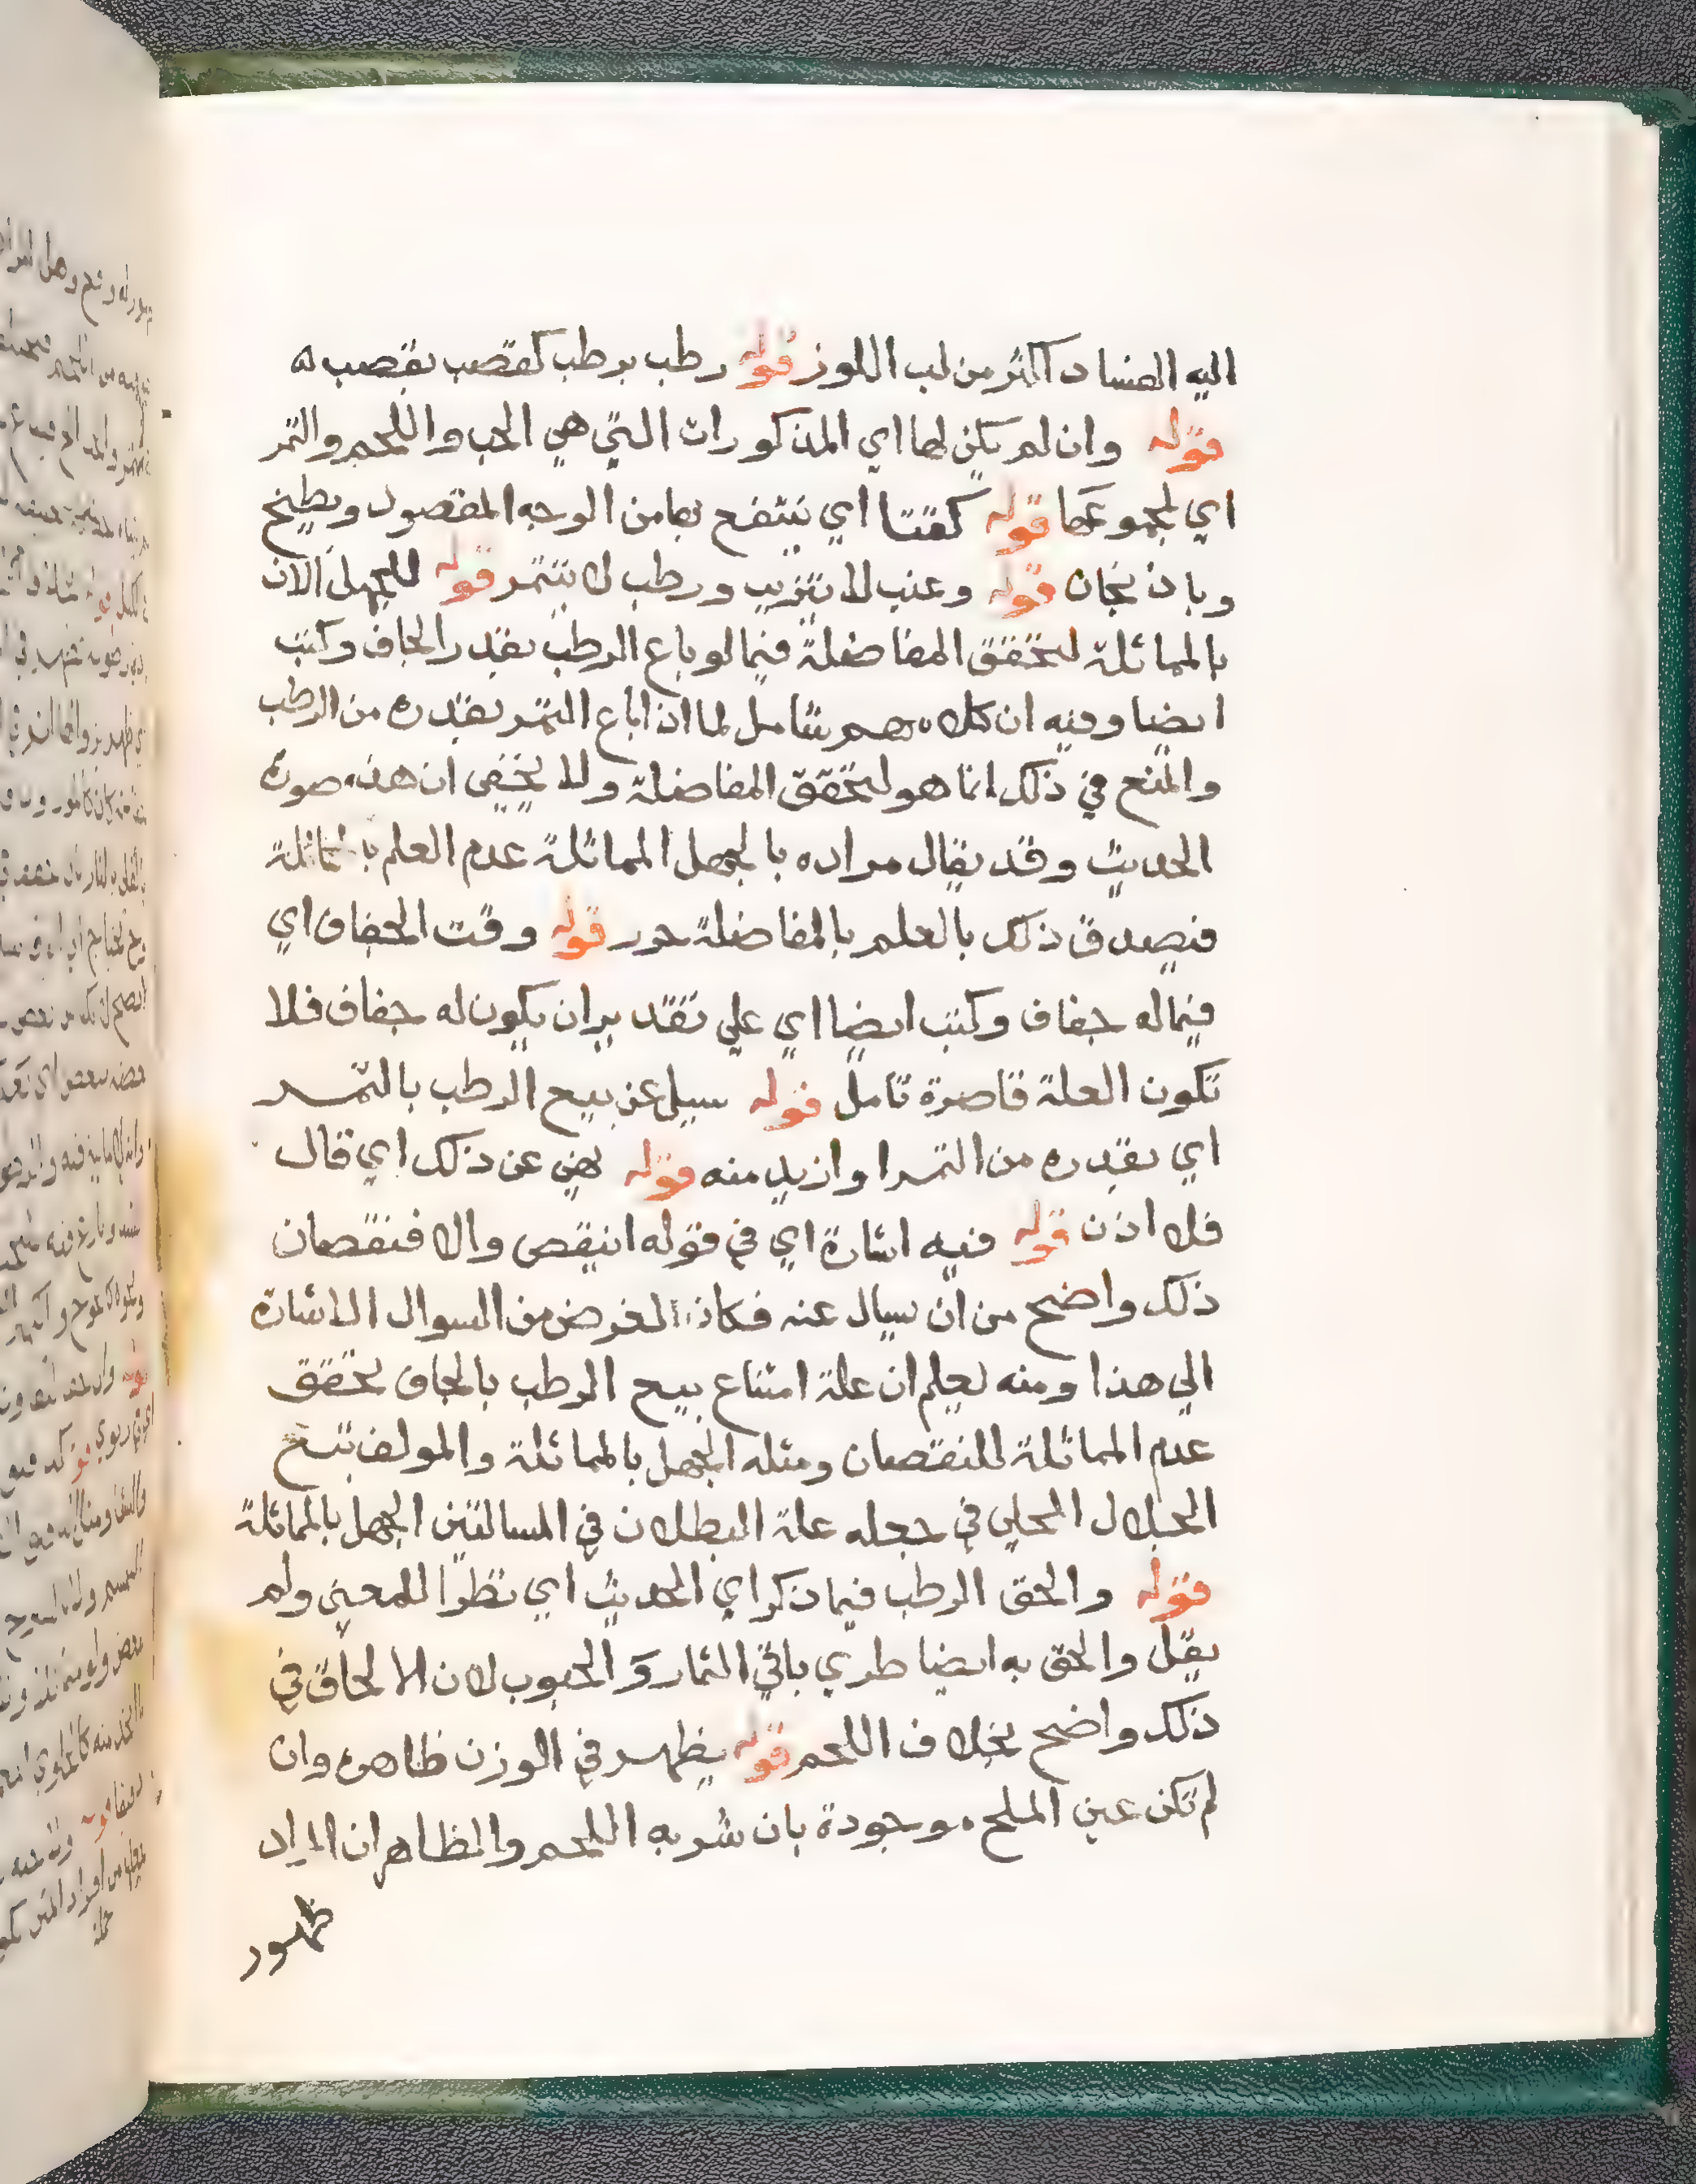 اليه الفساد اكثر من لب اللوز قوله رطب برطب كقصب بقصب له
قوله وان لم يكن لها اي المذكورات التي هي الحب واللحم والتمر
اي لمجموعها قوله كقتا اي ينتفع بها من الوجه المقصود وبطيخ
وباذنجان قوله وعنب لا يتزبب ورطب لا يتتمر قوله للجهل الان
بالمماثلة لتحقق المفاضلة فيما لو باع الرطب بقدر الجاف وكتب
ايضا وفيه ان كلامهم شامل لما اذا باع التمر بقدره من الرطب
والمنع في ذلك انما هو لتحقق المفاضلة ولا يخفي ان هذه صورة
الحديث وقد يقال مراده بالجهل المماثلة عدم العلم با تماثلة
فيصدق ذلك بالعلم بالمفاضلة حرر قوله وقت الجفاف اي
فيما له جفاف وكتب ايضا اي علي تقدير ان يكون له جفاف فلا
تكون العلة قاصرة تامل قوله سيل عن بيع الرطب بالتمر
اي بقدره من التمر او ازيد منه قوله نهي عن ذلك اي قال
فلا اذن قوله فيه اشارة اي في قوله اينقص والا فنقصان
ذلك واضح من ان سيال عنه فكان الغرض من السوال الاشارة
الي هذا ومنه يعلم ان علة امتناع بيع الرطب بالجاف تحقق
عدم المماثلة للنقصان ومثله الجهل بالمماثلة والمولف تبع
الجلال المحلي في جعله علة البطلان في المسالتين الجهل بالمماثلة
قوله والحق الرطب فيما ذكر اي الحديث اي نظرا للمعني ولم
يقل والحق به ايضا طري باقي الثمار و الحبوب لان الالحاق في
ذلك واضح بخلاف اللحم قوله يظهر في الوزن ظاهره وان
لم تكن عين الملح موجودة بان شربه اللحم والظاهر ان المراد
ظهور